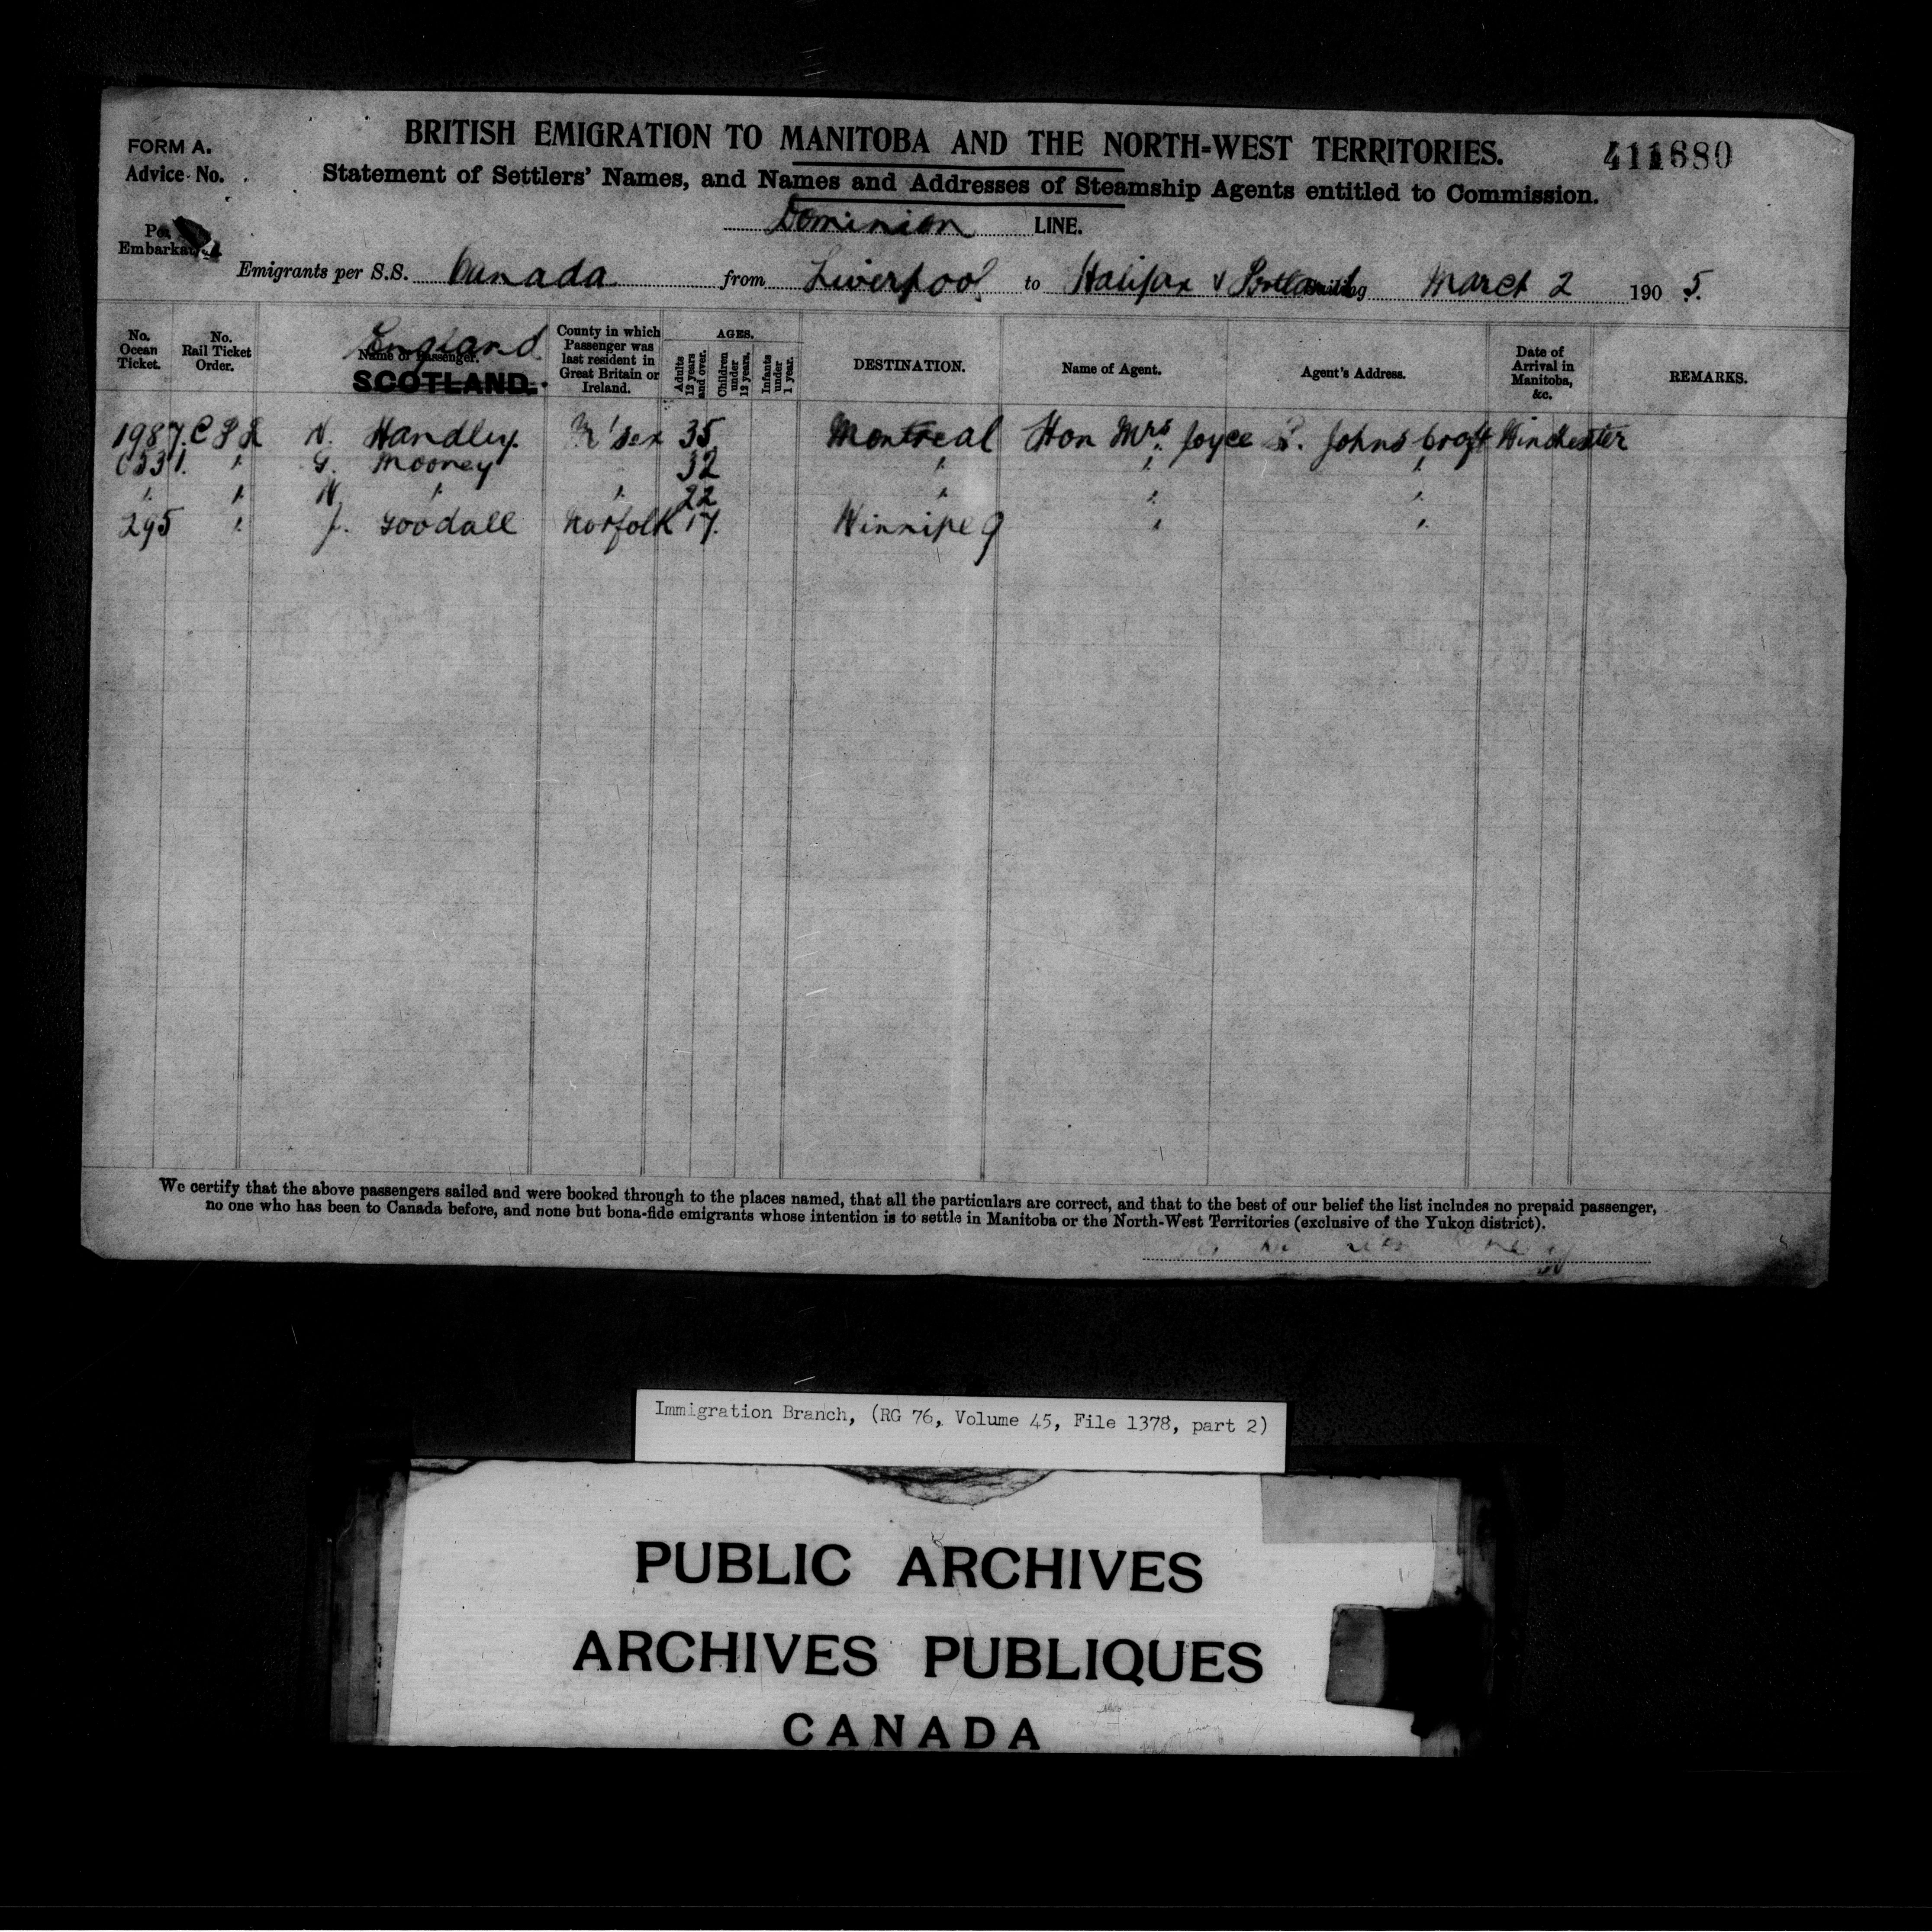 FORM A.
BRITISH EMIGRATION TO MANITOBA AND THE NORTH-WEST TERRITORIES.
411680
Advice No.
Statement of Settlers' Names, and Names and Addresses of Steamship Agents entitled to Commission.
Dominion LINE.
Emigrants per S.S. Canada from Liverpool to Halifax & Portland March 2 1905.
No. Ocean Ticket.
No. Rail Ticket Order.
England
Name of Passenger.
SCOTLAND.
County in which Passenger was last resident in Great Britain or Ireland.
AGES.
Adults 12 years and over.
Children under 12 years.
Infants under 1 year.
DESTINATION.
Name of Agent.
Agent's Address.
Date of Arrival in Manitoba, &c.
REMARKS.
1987. C P R N. Handley. M'sex 35. Montreal Hon Mrs. Joyce St. Johns Croft Winchester
0531. " G. Mooney 32 " " "
" " N. " " 22 " " "
295 " J. Goodall Norfolk 17. Winnipeg " "
We certify that the above passengers sailed and were booked through to the places named, that all the particulars are correct, and that to the best of our belief the list includes no prepaid passenger,
no one who has been to Canada before, and none but bona-fide emigrants whose intention is to settle in Manitoba or the North-West Territories (exclusive of the Yukon district).
Immigration Branch, (RG 76, Volume 45, File 1378, part 2)
PUBLIC ARCHIVES
ARCHIVES PUBLIQUES
CANADA